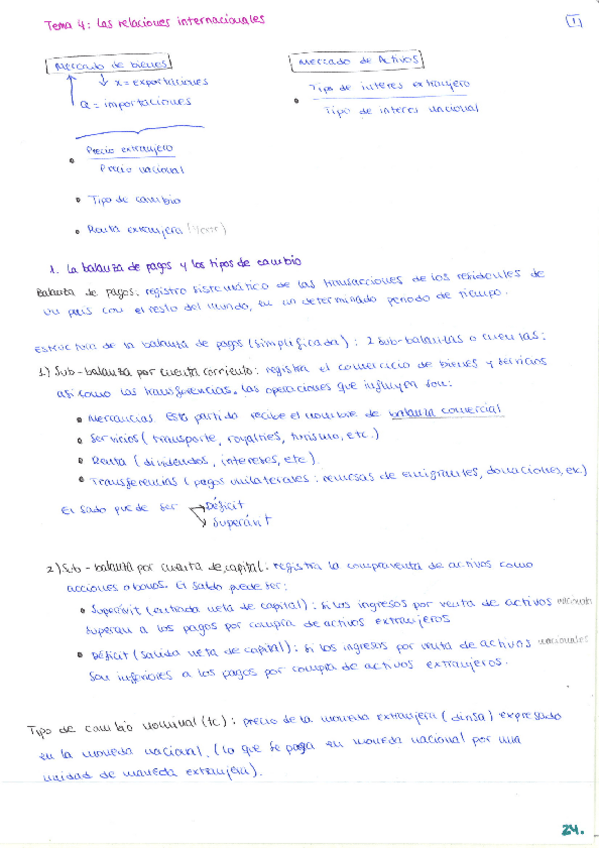 Tema 4: Las relaciones internacionales
1
Mercado de bienes
Mercado de Activos
x = exportaciones
Q = importaciones
Tipo de interes extranjero
Tipo de interes nacional
Precio extranjero
Precio nacional
Tipo de cambio
Renta extranjera (Yexte)
1. La balanza de pagos y los tipos de cambio
Balanza de pagos: registro sistemático de las transacciones de los residentes de
un país con el resto del mundo, en un determinado periodo de tiempo.
Estructura de la balanza de pagos (simplificada): 2 sub-balanzas o cuentas:
1) Sub-balanza por cuenta corriente: registra el comercio de bienes y servicios
así como las transferencias. Las operaciones que influyen son:
Mercancias. Esta partida recibe el nombre de balanza comercial
Servicios (transporte, royalties, turismo, etc.)
Renta (dividendos, intereses, etc)
Transferencias (pagos unilaterales: remesas de emigrantes, donaciones, etc)
El saldo puede ser
Déficit
Superávit
2) Sub-balanza por cuenta de capital: registra la compraventa de activos como
acciones o bonos. El saldo puede ser:
Superávit (entrada neta de capital): Si los ingresos por venta de activos nacionales
superan a los pagos por compra de activos extranjeros
Déficit (salida neta de capital): Si los ingresos por venta de activos nacionales
son inferiores a los pagos por compra de activos extranjeros.
Tipo de cambio nominal (tc): precio de la moneda extranjera (divisa) expresado
en la moneda nacional. (lo que se paga en moneda nacional por una
unidad de moneda extranjera).
24.